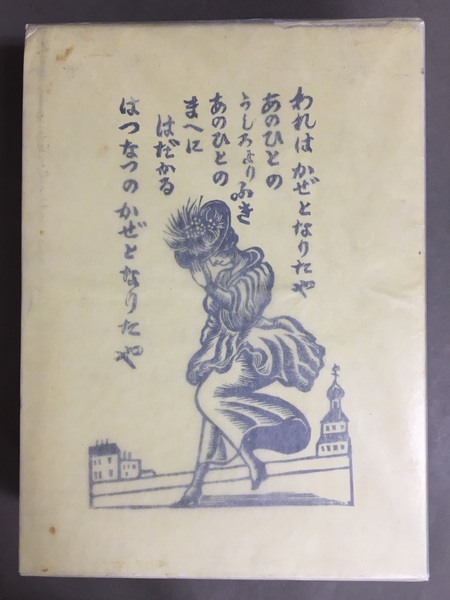 われは かぜとなりたや
あのひとの
うしろよりふき
あのひとの
まへに
はだかる
はつなつの かぜとなりたや